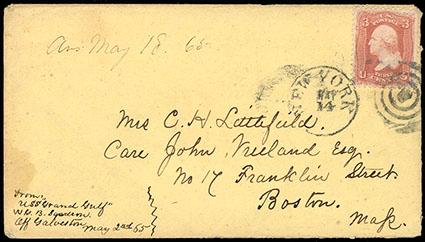 Ans May 18. 65
3 U.S. POSTAGE 3
NEW YORK
MAY
14
Mrs C. H. Littlefield.
Care John, Vreeland Esq.
No 17 Franklin Street.
Boston.
Mass.
From,
USS "Grand Gulf"
W. G. B. Squadron.
Off Galveston,
May 2nd 65